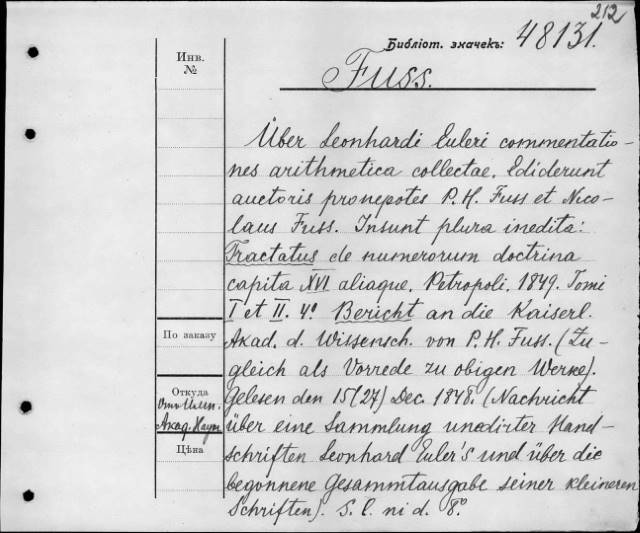 212
Библіот. значекъ: 48131.
Инв.
№
Fuss.
Über Leonhardi Euleri commentatio-
nes arithmetica collectae. Ediderunt
auctoris pronepotes P. H. Fuss et Nico-
laus Fuss. Insunt plura inedita:
Tractatus de numerorum doctrina
capita XVI aliaque. Petropoli. 1849. Tomi
I et II. 4º Bericht an die Kaiserl.
По заказу
Akad. d. Wissensch. von P. H. Fuss. (Zu-
gleich als Vorrede zu obigen Werke).
Откуда
Gelesen den 15(27) Dec. 1848. (Nachricht
Отъ Имп.
Акад. Наукъ
über eine Sammlung unedirter Hand-
Цѣна
schriften Leonhard Euler's und über die
begonnene Gesammtausgabe seiner kleineren
Schriften). S. l. ni d. 8º